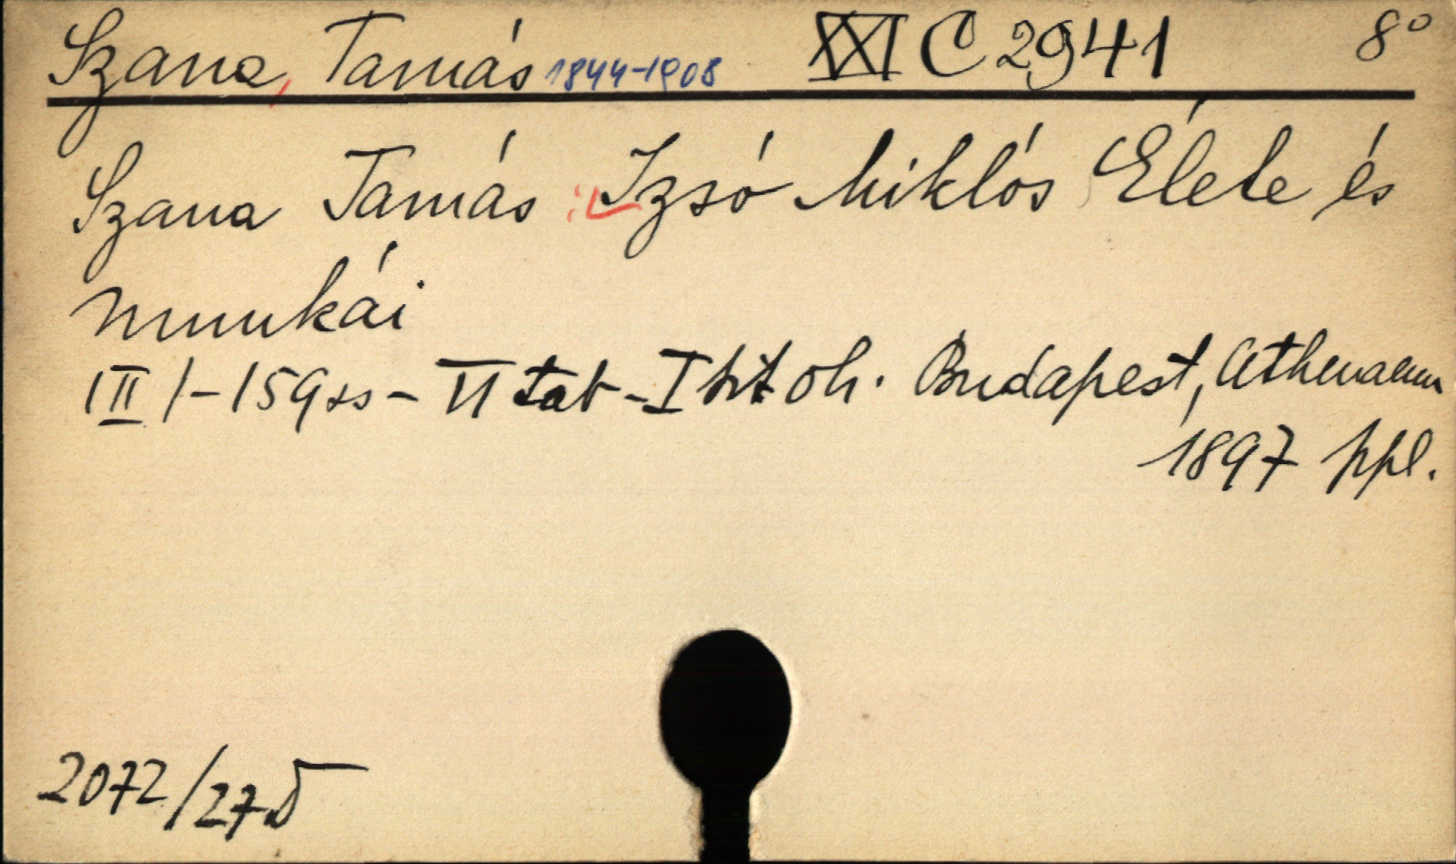 Szana, Tamás 1844-1908 XXI C 2941 8°
Szana Tamás : Izsó Miklós Élete és
munkái
III 1-159 ss - VI tab - I tit oh. Budapest, Athenaeum
1897 ppl.
2072/27 D